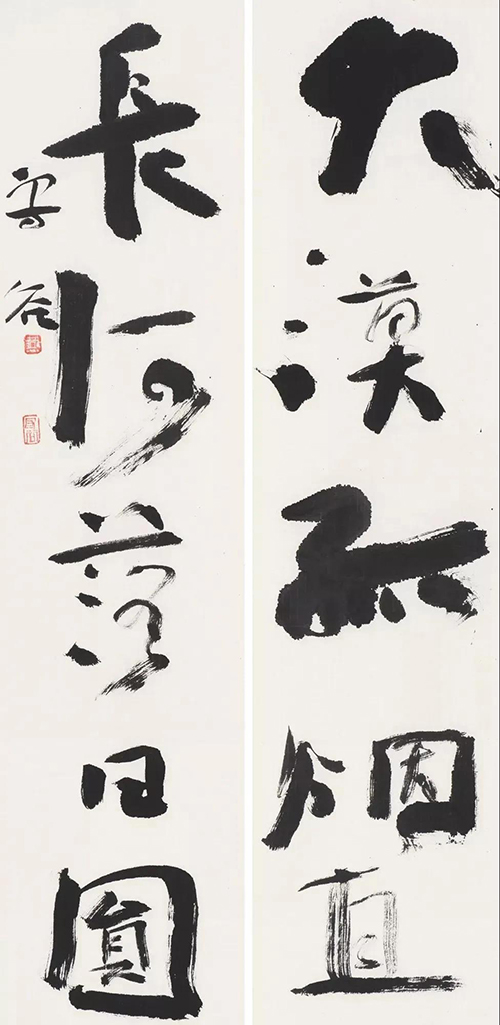 大漠孤烟直
長河落日圓
谷